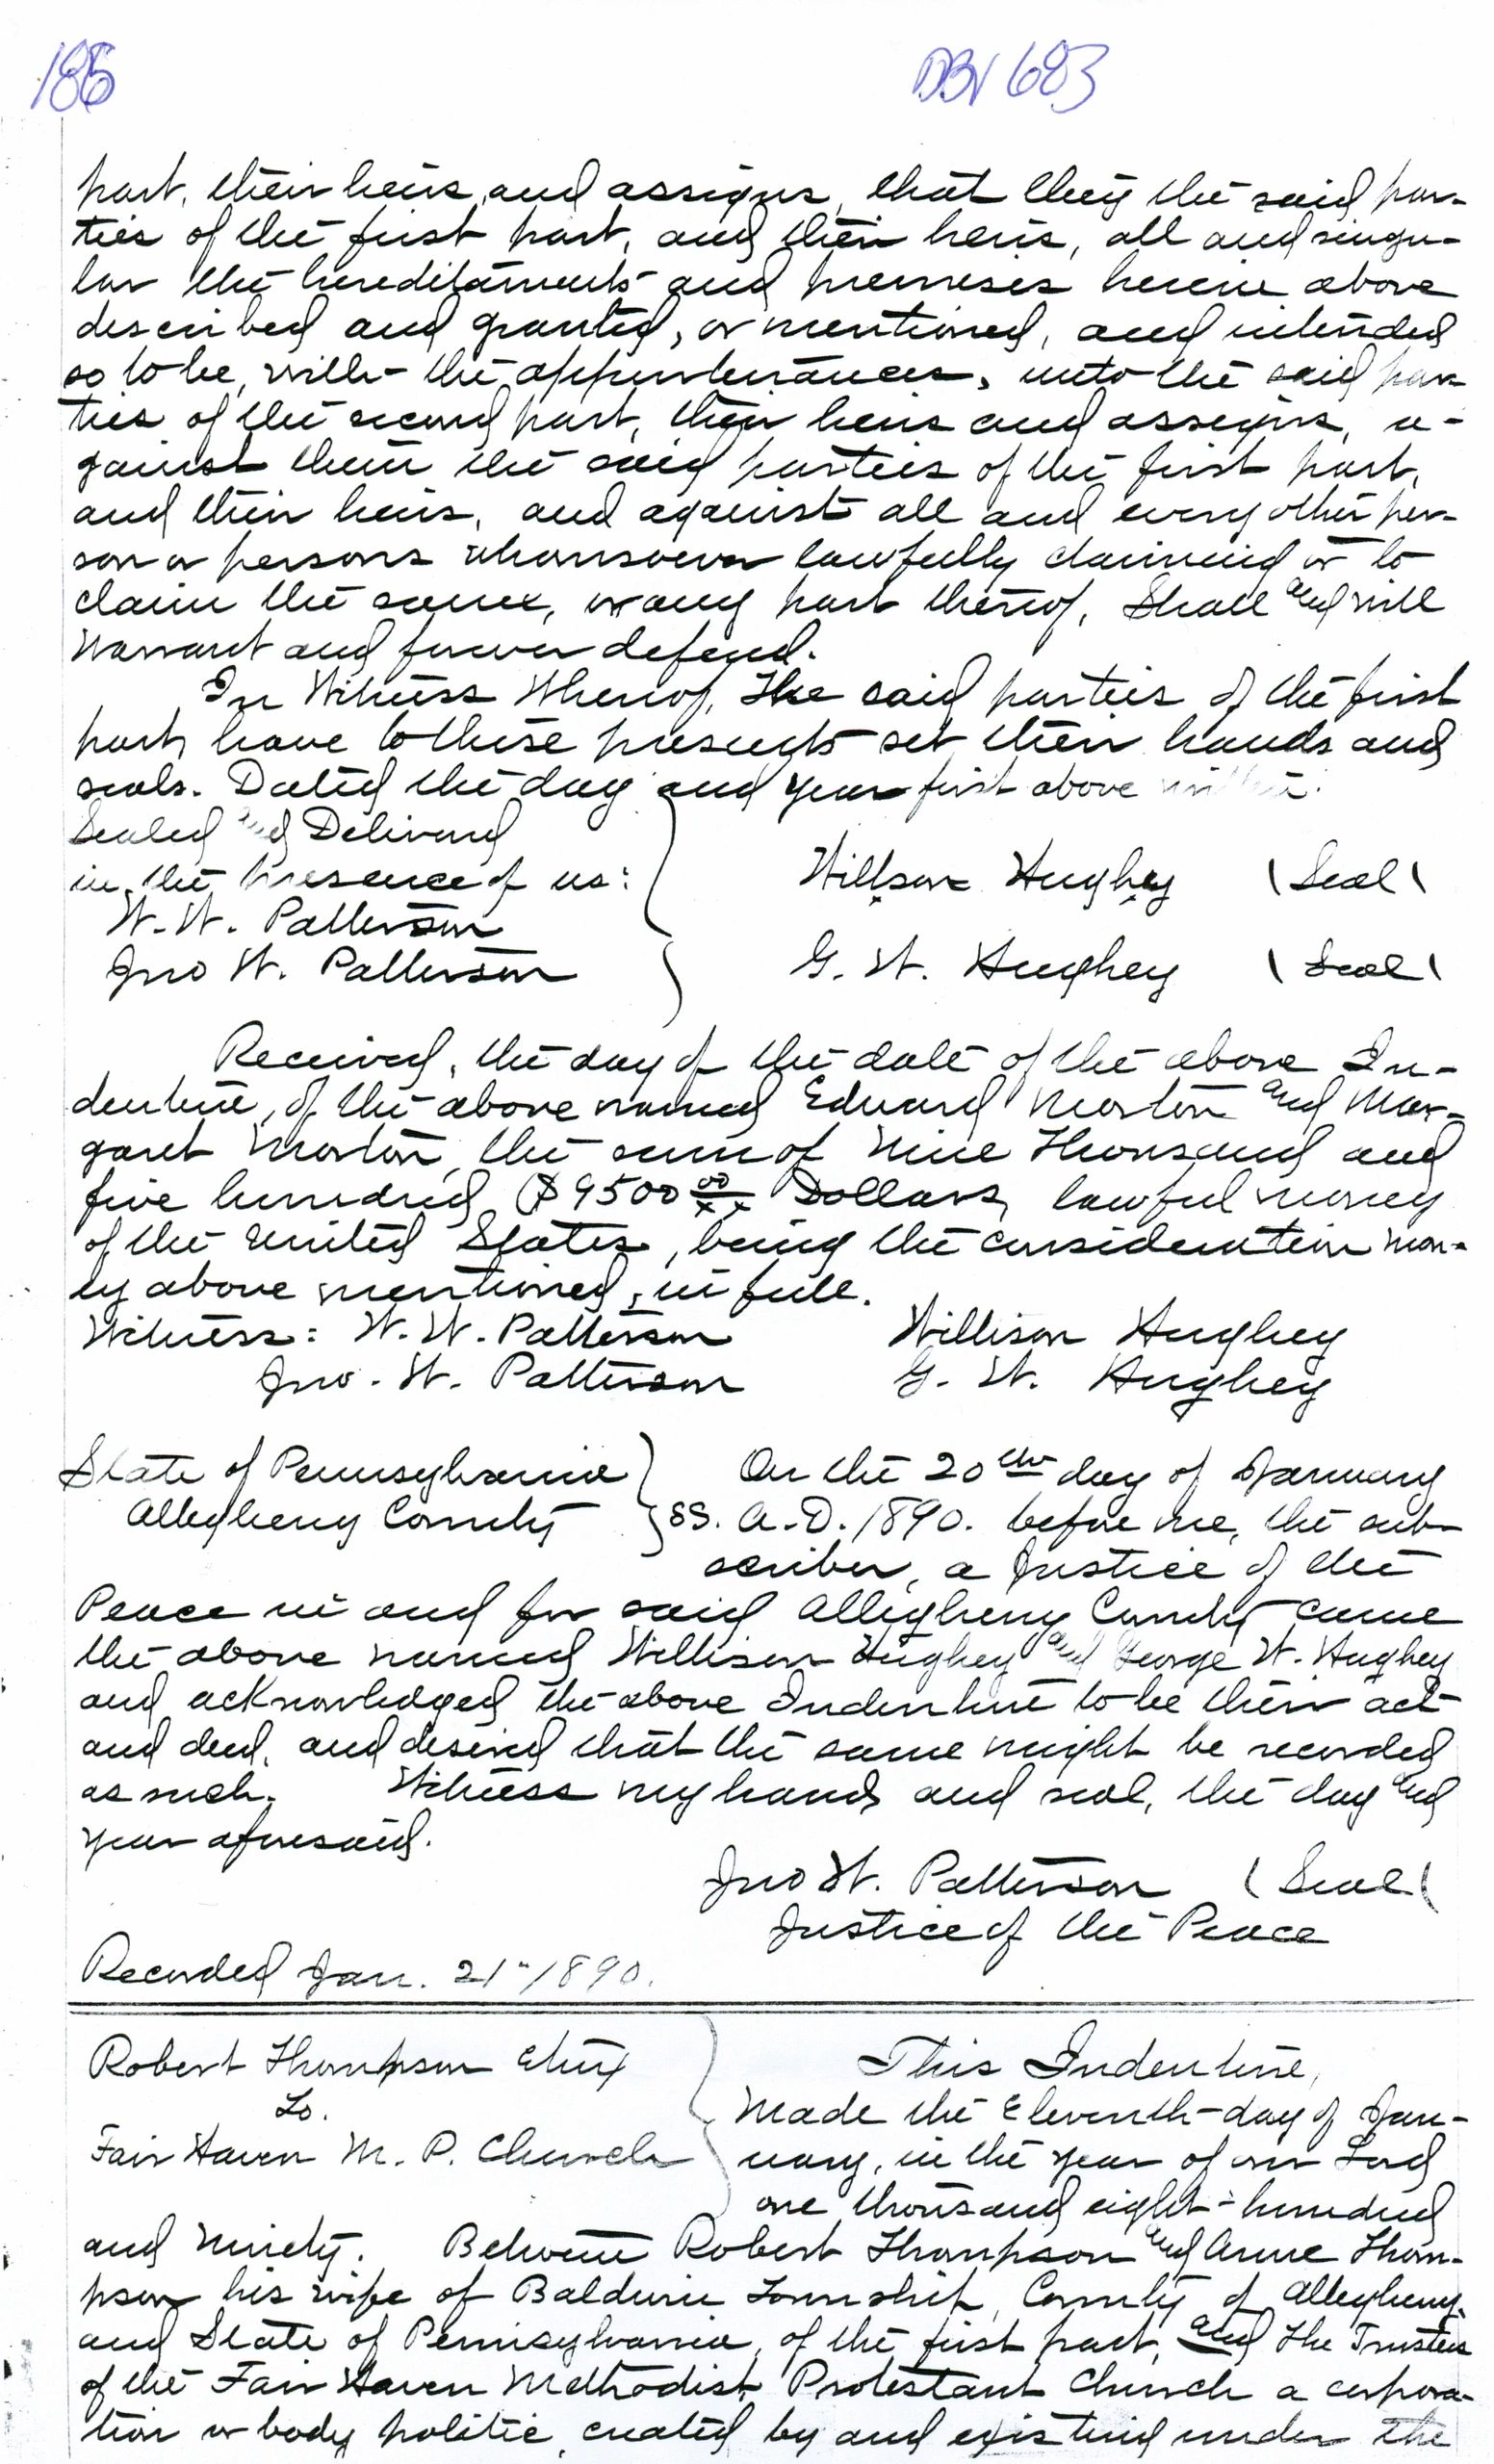 186 DBV 683
part, their heirs, and assigns, that they the said par-
ties of the first part, and their heirs, all and singu-
lar the hereditaments and premises herein above
described and granted, or mentioned, and intended
so to be, with the appurtenances, unto the said par-
ties of the second part, their heirs and assigns, a-
gainst them the said parties of the first part,
and their heirs, and against all and every other per-
son or persons whomsoever lawfully claiming or to
claim the same, or any part thereof, Shall and will
warrant and forever defend.
In Witness Whereof, The said parties of the first
part, have to these presents set their hands and
seals. Dated the day and year first above written.
Sealed and Delivered
in the presence of us: Willson Hughey (Seal)
W. W. Patterson
Jno W. Patterson G. W. Hughey (Seal)
Received, the day of the date of the above In-
denture, of the above named Edward Morton and Mar-
garet Morton, the sum of Nine Thousand and
five hundred ($9500 00/xx Dollars, lawful money
of the United States, being the consideration mon-
ey above mentioned, in full.
Witness: W. W. Patterson Willison Hughey
Jno. W. Patterson G. W. Hughey
State of Pennsylvania } On the 20th day of January
Allegheny County } SS. A.D. 1890. before me, the sub-
scriber, a Justice of the
Peace in and for said Allegheny County came
the above named Willison Hughey and George W. Hughey
and acknowledged the above Indenture to be their act
and deed, and desired that the same might be recorded
as such. Witness my hand and seal, the day and
year aforesaid.
Jno W. Patterson (Seal)
Justice of the Peace
Recorded Jan. 21" 1890.
Robert Thompson Etux } This Indenture,
To. Made the Eleventh day of Jan-
Fair Haven M. P. Church } uary, in the year of our Lord
one thousand eight hundred
and ninety. Between Robert Thompson and Anne Thom-
pson his wife of Baldwin Township, County of Allegheny
and State of Pennsylvania, of the first part, and The Trustees
of the Fair Haven Methodist Protestant Church a corpora-
tion or body politic, created by and existing under the